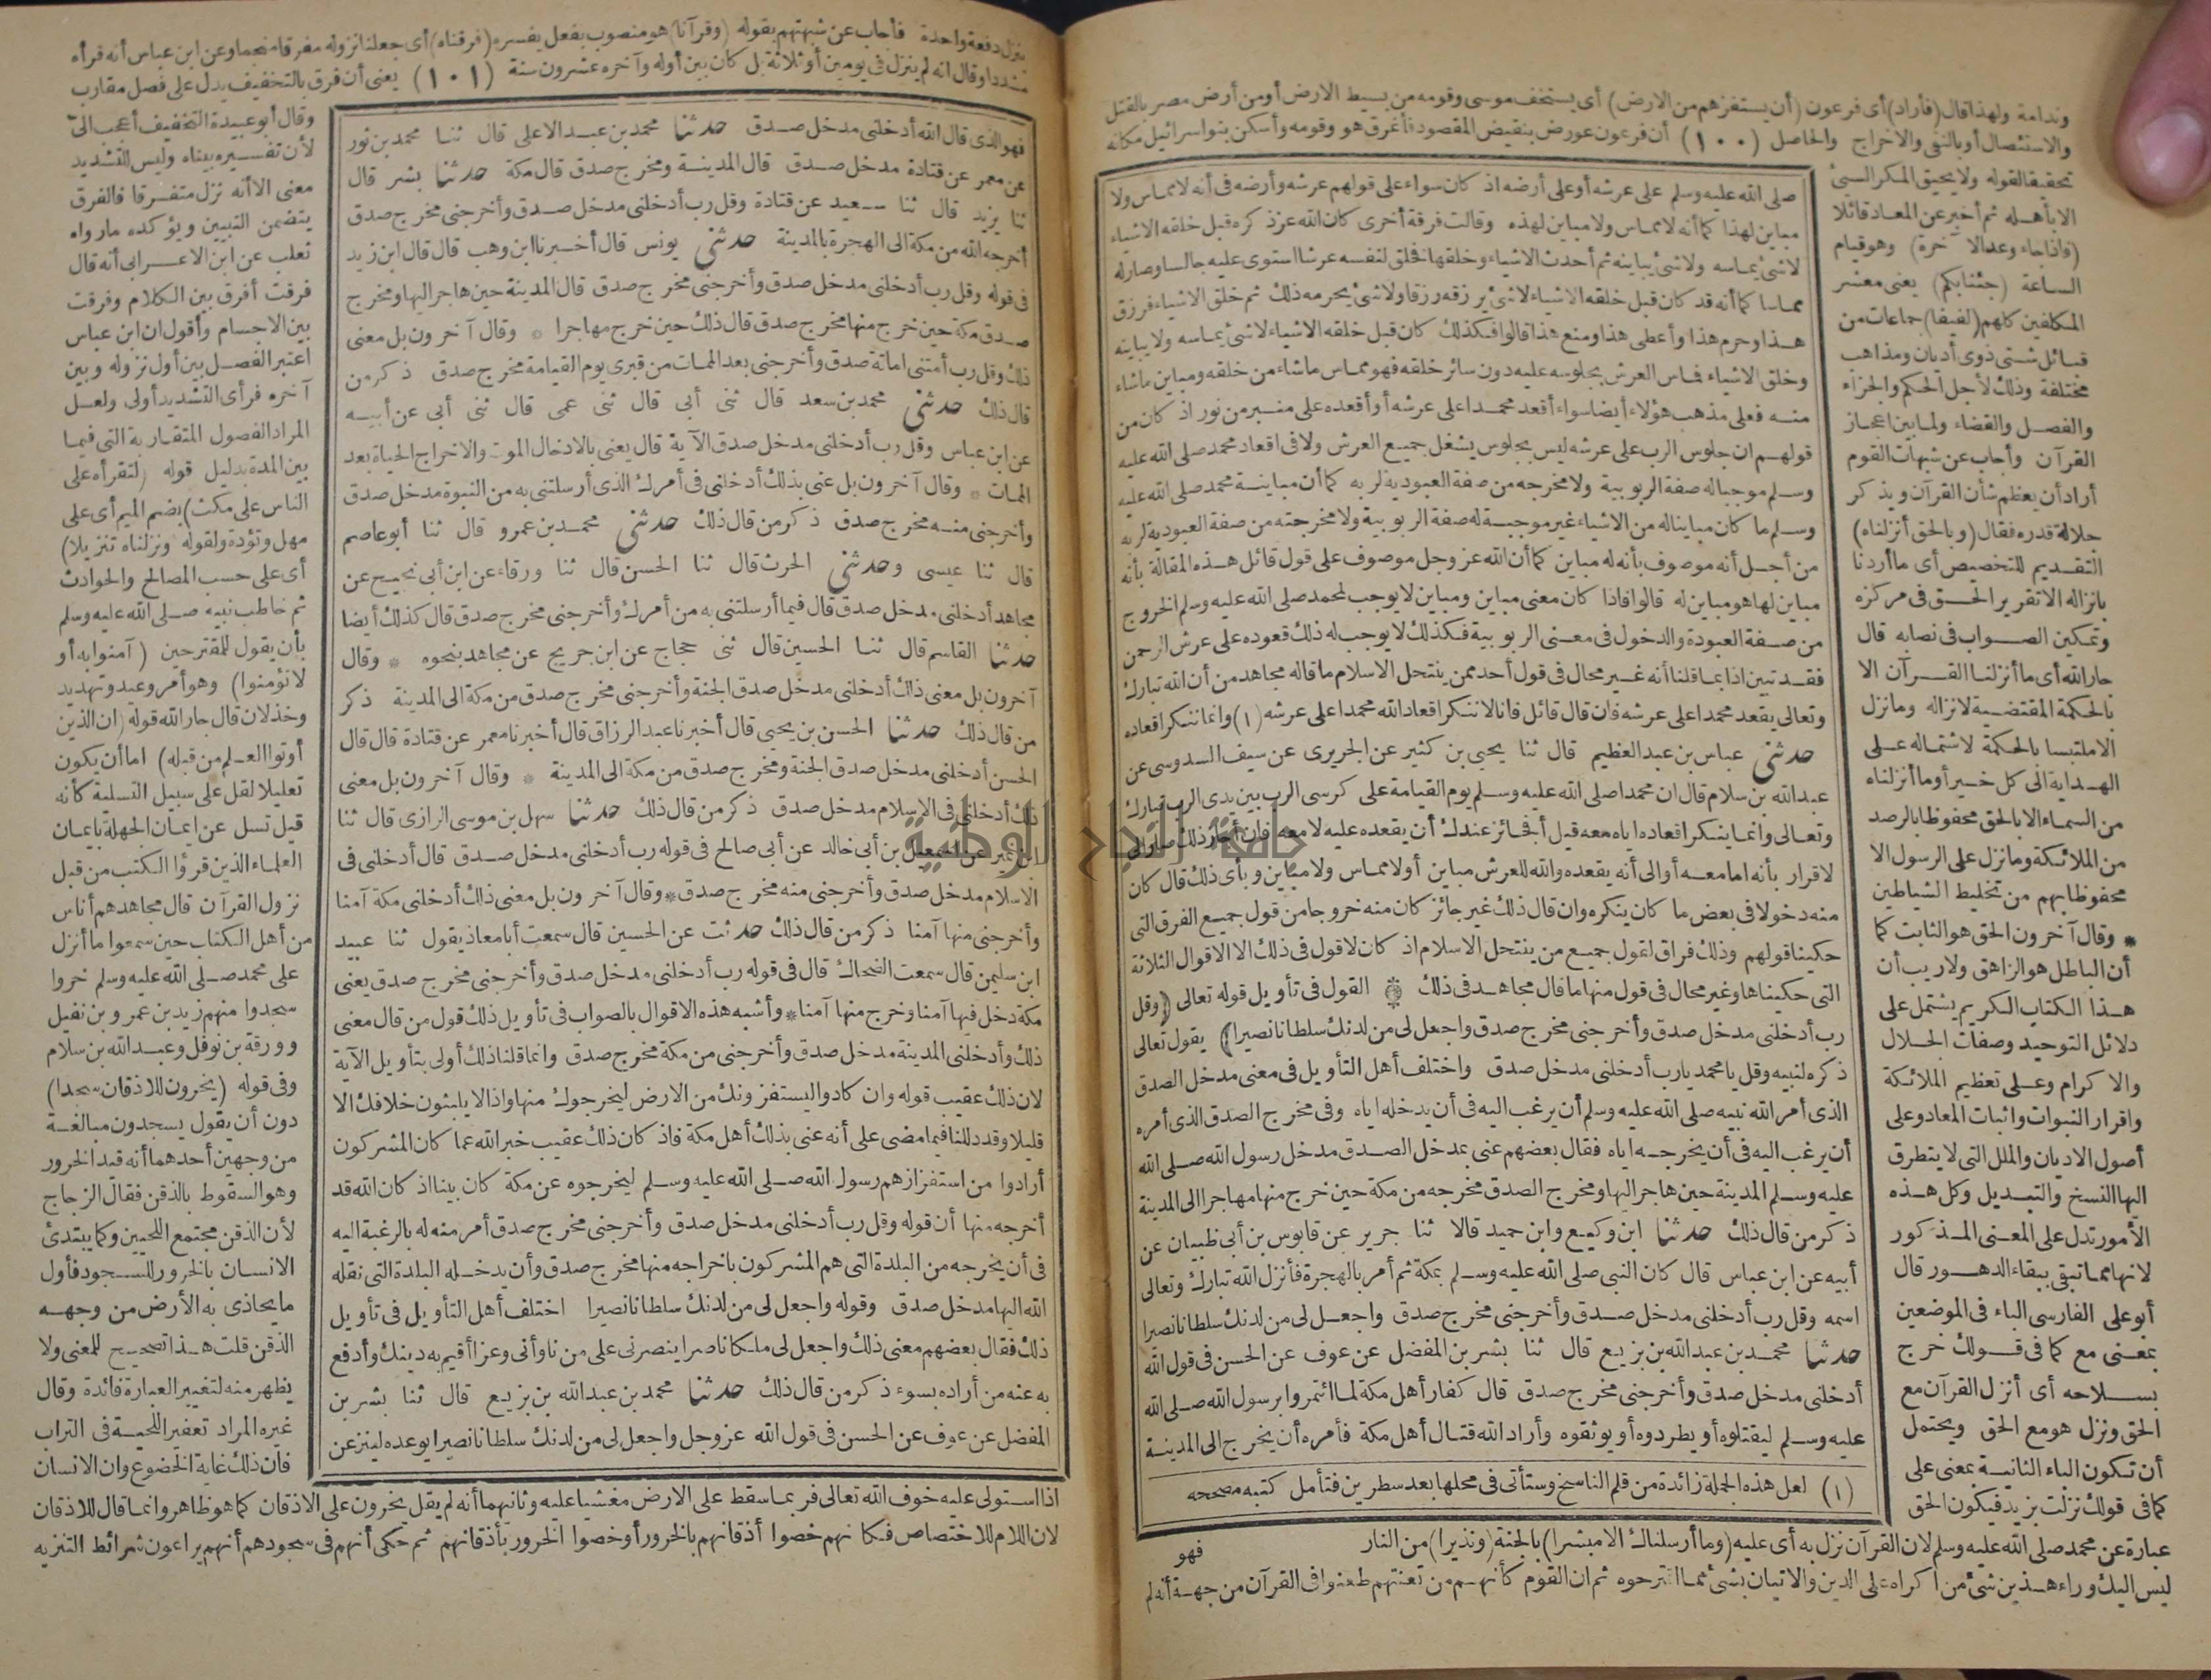 وندامة ولهذا قال (فأراد) أى فرعون (أن يستفزهم من الارض) أى يستخف موسى وقومه من بسيط الارض أو من أرض مصر بالقتل
والاستئصال أو بالنفى والاخراج والحاصل (١٠٠) أن فرعون عورض بنقيض المقصود فأغرق هو وقومه وأسكن بنو اسرائيل مكانه
تحقيقا لقوله ولا يحيق المكر السيئ
الا بأهله ثم أخبر عن المعاد قائلا
(فاذا جاء وعد الآخرة) وهو قيام
الساعة (جئنا بكم) يعنى معشر
المكلفين كلهم (لفيفا) جماعات من
قبائل شتى ذوى أديان ومذاهب
مختلفة وذلك لأجل الحكم والجزاء
والفصل والقضاء ولما بين اعجاز
القرآن وأجاب عن شبهات القوم
أراد أن يعظم شأن القرآن ويذكر
جلالة قدره فقال (وبالحق أنزلناه)
التقديم للتخصيص أى ما أردنا
بانزاله الا تقرير الحق فى مركزه
وتمكين الصواب فى نصابه قال
جار الله أى ما أنزلنا القرآن الا
بالحكمة المقتضية لانزاله وما نزل
الا ملتبسا بالحكمة لاشتماله على
الهداية الى كل خير أو ما أنزلناه
من السماء الا بالحق محفوظا بالرصد
من الملائكة وما نزل على الرسول الا
محفوظا بهم من تخليط الشياطين
* وقال آخرون الحق هو الثابت كما
أن الباطل هو الزاهق ولا ريب أن
هذا الكتاب الكريم يشتمل على
دلائل التوحيد وصفات الجلال
والاكرام وعلى تعظيم الملائكة
واقرار النبوات واثبات المعاد وعلى
أصول الاديان والملل التى لا يتطرق
اليها النسخ والتبديل وكل هذه
الأمور تدل على المعنى المذكور
لانها مما تبقى ببقاء الدهور قال
أبو على الفارسى الباء فى الموضعين
بمعنى مع كما فى قولك خرج
بسلاحه أى أنزل القرآن مع
الحق ونزل هو مع الحق ويحتمل
أن تكون الباء الثانية بمعنى على
كما فى قولك نزلت بزيد فيكون الحق
عبارة عن محمد صلى الله عليه وسلم لان القرآن نزل به أى عليه (وما أرسلناك الا مبشرا) بالجنة (ونذيرا) من النار
ليس اليك وراء هذين شئ من اكراه على الدين والاتيان بشئ مما اقترحوه ثم ان القوم كأنهم من تعنتهم طعنوا فى القرآن من جهة أنه لم
صلى الله عليه وسلم على عرشه أو على أرضه اذ كان سواء على قولهم عرشه وأرضه فى أنه لا مماس ولا
مباين لهذا كما أنه لا مماس ولا مباين لهذه وقالت فرقة أخرى كان الله عز ذكره قبل خلقه الاشياء
لا شئ يماسه ولا شئ يباينه ثم أحدث الاشياء وخلقها فخلق لنفسه عرشا استوى عليه جالسا وصار له
مماسا كما أنه قد كان قبل خلقه الاشياء لا شئ يرزقه رزقا ولا شئ يحرمه ذلك ثم خلق الاشياء فرزق
هذا وحرم هذا وأعطى هذا ومنع هذا قالوا فكذلك كان قبل خلقه الاشياء لا شئ يماسه ولا يباينه
وخلق الاشياء فماس العرش بجلوسه عليه دون سائر خلقه فهو مماس ما شاء من خلقه ومباين ما شاء
منه فعلى مذهب هؤلاء أيضا سواء أقعد محمدا على عرشه أو أقعده على منبر من نور اذ كان من
قولهم ان جلوس الرب على عرشه ليس بجلوس يشغل جميع العرش ولا فى اقعاد محمد صلى الله عليه
وسلم موجبا له صفة الربوبية ولا مخرجه من صفة العبودية لربه كما أن مباينة محمد صلى الله عليه
وسلم ما كان مباينا له من الاشياء غير موجبة له صفة الربوبية ولا مخرجته من صفة العبودية لربه
من أجل أنه موصوف بأنه له مباين كما أن الله عز وجل موصوف على قول قائل هذه المقالة بأنه
مباين لها هو مباين له قالوا فاذا كان معنى مباين ومباين لا يوجب لمحمد صلى الله عليه وسلم الخروج
من صفة العبودة والدخول فى معنى الربوبية فكذلك لا يوجب له ذلك قعوده على عرش الرحمن
فقد تبين اذا بما قلنا أنه غير محال فى قول أحد ممن ينتحل الاسلام ما قاله مجاهد من أن الله تبارك
وتعالى يقعد محمدا على عرشه فان قال قائل فانا لا ننكر اقعاد الله محمدا على عرشه (١) وانما ننكر اقعاده
حدثنى عباس بن عبد العظيم قال ثنا يحيى بن كثير عن الجريرى عن سيف السدوسى عن
عبد الله بن سلام قال ان محمدا صلى الله عليه وسلم يوم القيامة على كرسى الرب بين يدى الرب تبارك
وتعالى وانما ينكر اقعاده اياه معه قيل أفجائز عندك أن يقعده عليه لا معه فان أجاز ذلك صار الى
الاقرار بأنه اما معه أو الى أنه يقعده والله للعرش مباين أو لا مماس ولا مباين وبأى ذلك قال كان
منه دخولا فى بعض ما كان ينكره وان قال ذلك غير جائز كان منه خروجا من قول جميع الفرق التى
حكينا قولهم وذلك فراق لقول جميع من ينتحل الاسلام اذ كان لا قول فى ذلك الا الاقوال الثلاثة
التى حكيناها وغير محال فى قول منها ما قال مجاهد فى ذلك * القول فى تأويل قوله تعالى (وقل
رب أدخلنى مدخل صدق وأخرجنى مخرج صدق واجعل لى من لدنك سلطانا نصيرا) يقول تعالى
ذكره لنبيه وقل يا محمد يا رب أدخلنى مدخل صدق واختلف أهل التأويل فى معنى مدخل الصدق
الذى أمر الله نبيه صلى الله عليه وسلم أن يرغب اليه فى أن يدخله اياه وفى مخرج الصدق الذى أمره
أن يرغب اليه فى أن يخرجه اياه فقال بعضهم عنى بمدخل الصدق مدخل رسول الله صلى الله
عليه وسلم المدينة حين هاجر اليها ومخرج الصدق مخرجه من مكة حين خرج منها مهاجرا الى المدينة
ذكر من قال ذلك حدثنا ابن وكيع وابن حميد قالا ثنا جرير عن قابوس بن أبى ظبيان عن
أبيه عن ابن عباس قال كان النبى صلى الله عليه وسلم بمكة ثم أمر بالهجرة فأنزل الله تبارك وتعالى
اسمه وقل رب أدخلنى مدخل صدق وأخرجنى مخرج صدق واجعل لى من لدنك سلطانا نصيرا
حدثنا محمد بن عبد الله بن بزيع قال ثنا بشر بن المفضل عن عوف عن الحسن فى قول الله
أدخلنى مدخل صدق وأخرجنى مخرج صدق قال كفار أهل مكة لما ائتمروا برسول الله صلى الله
عليه وسلم ليقتلوه أو يطردوه أو يوثقوه وأراد الله قتال أهل مكة فأمره أن يخرج الى المدينة
(١) لعل هذه الجملة زائدة من قلم الناسخ وستأتى فى محلها بعد سطرين فتأمل كتبه مصححه
فهو
ينزل دفعة واحدة فأجاب عن شبهتهم بقوله (وقرآنا) هو منصوب بفعل يفسره (فرقناه) أى جعلنا نزوله مفرقا منجما وعن ابن عباس أنه قرأه
مشددا وقال انه لم ينزل فى يومين أو ثلاثة بل كان بين أوله وآخره عشرون سنة (١٠١) يعنى أن فرق بالتخفيف يدل على فصل مقارب
فهو الذى قال الله أدخلنى مدخل صدق حدثنا محمد بن عبد الاعلى قال ثنا محمد بن ثور
عن معمر عن قتادة مدخل صدق قال المدينة ومخرج صدق قال مكة حدثنا بشر قال
ثنا يزيد قال ثنا سعيد عن قتادة وقل رب أدخلنى مدخل صدق وأخرجنى مخرج صدق
أخرجه الله من مكة الى الهجرة بالمدينة حدثنى يونس قال أخبرنا ابن وهب قال قال ابن زيد
فى قوله وقل رب أدخلنى مدخل صدق وأخرجنى مخرج صدق قال المدينة حين هاجر اليها ومخرج
صدق مكة حين خرج منها مخرج صدق قال ذلك حين خرج مهاجرا * وقال آخرون بل معنى
ذلك وقل رب أمتنى اماتة صدق وأخرجنى بعد الممات من قبرى يوم القيامة مخرج صدق ذكر من
قال ذلك حدثنى محمد بن سعد قال ثنى أبى قال ثنى عمى قال ثنى أبى عن أبيه
عن ابن عباس وقل رب أدخلنى مدخل صدق الآية قال يعنى بالادخال الموت والاخراج الحياة بعد
الممات * وقال آخرون بل عنى بذلك أدخلنى فى أمرك الذى أرسلتنى به من النبوة مدخل صدق
وأخرجنى منه مخرج صدق ذكر من قال ذلك حدثنى محمد بن عمرو قال ثنا أبو عاصم
قال ثنا عيسى وحدثنى الحرث قال ثنا الحسن قال ثنا ورقاء عن ابن أبى نجيح عن
مجاهد أدخلنى مدخل صدق قال فيما أرسلتنى به من أمرك وأخرجنى مخرج صدق قال كذلك أيضا
حدثنا القاسم قال ثنا الحسين قال ثنى حجاج عن ابن جريج عن مجاهد بنحوه * وقال
آخرون بل معنى ذلك أدخلنى مدخل صدق الجنة وأخرجنى مخرج صدق من مكة الى المدينة ذكر
من قال ذلك حدثنا الحسن بن يحيى قال أخبرنا عبد الرزاق قال أخبرنا معمر عن قتادة قال قال
الحسن أدخلنى مدخل صدق الجنة ومخرج صدق من مكة الى المدينة * وقال آخرون بل معنى
ذلك أدخلنى فى الاسلام مدخل صدق ذكر من قال ذلك حدثنا سهل بن موسى الرازى قال ثنا
ابن نمير عن اسمعيل بن أبى خالد عن أبى صالح فى قوله رب أدخلنى مدخل صدق قال أدخلنى فى
الاسلام مدخل صدق وأخرجنى منه مخرج صدق * وقال آخرون بل معنى ذلك أدخلنى مكة آمنا
وأخرجنى منها آمنا ذكر من قال ذلك حدثت عن الحسين قال سمعت أبا معاذ يقول ثنا عبيد
ابن سليمن قال سمعت الضحاك قال فى قوله رب أدخلنى مدخل صدق وأخرجنى مخرج صدق يعنى
مكة دخل فيها آمنا وخرج منها آمنا * وأشبه هذه الاقوال بالصواب فى تأويل ذلك قول من قال معنى
ذلك وأدخلنى المدينة مدخل صدق وأخرجنى من مكة مخرج صدق وانما قلنا ذلك أولى بتأويل الآية
لان ذلك عقيب قوله وان كادوا ليستفزونك من الارض ليخرجوك منها واذا لا يلبثون خلافك الا
قليلا وقد دللنا فيما مضى على أنه عنى بذلك أهل مكة فاذ كان ذلك عقيب خبر الله عما كان المشركون
أرادوا من استفزازهم رسول الله صلى الله عليه وسلم ليخرجوه عن مكة كان بينا اذ كان الله قد
أخرجه منها أن قوله وقل رب أدخلنى مدخل صدق وأخرجنى مخرج صدق أمر منه له بالرغبة اليه
فى أن يخرجه من البلدة التى هم المشركون باخراجه منها مخرج صدق وأن يدخله البلدة التى نقله
الله اليها مدخل صدق وقوله واجعل لى من لدنك سلطانا نصيرا اختلف أهل التأويل فى تأويل
ذلك فقال بعضهم معنى ذلك واجعل لى ملكا ناصرا ينصرنى على من ناوأنى وعزا أقيم به دينك وأدفع
به عنه من أراده بسوء ذكر من قال ذلك حدثنا محمد بن عبد الله بن بزيع قال ثنا بشر بن
المفضل عن عوف عن الحسن فى قول الله عز وجل واجعل لى من لدنك سلطانا نصيرا يوعده لينزعن
وقال أبو عبيدة التخفيف أعجب الىّ
لأن تفسيره بيناه وليس للتشديد
معنى الا أنه نزل متفرقا فالفرق
يتضمن التبيين ويؤكده ما رواه
ثعلب عن ابن الاعرابى أنه قال
فرقت أفرق بين الكلام وفرقت
بين الاجسام وأقول ان ابن عباس
اعتبر الفصل بين أول نزوله وبين
آخره فرأى التشديد أولى ولعل
المراد الفصول المتقاربة التى فيما
بين المدة بدليل قوله (لتقرأه على
الناس على مكث) بضم الميم أى على
مهل وتؤدة ولقوله (ونزلناه تنزيلا)
أى على حسب المصالح والحوادث
ثم خاطب نبيه صلى الله عليه وسلم
بأن يقول للمقترحين (آمنوا به أو
لا تؤمنوا) وهو أمر وعيد وتهديد
وخذلان قال جار الله قوله (ان الذين
أوتوا العلم من قبله) اما أن يكون
تعليلا لقل على سبيل التسلية كأنه
قيل تسل عن ايمان الجهلة بايمان
العلماء الذين قرؤا الكتب من قبل
نزول القرآن قال مجاهد هم أناس
من أهل الكتاب حين سمعوا ما أنزل
على محمد صلى الله عليه وسلم خروا
سجدوا منهم زيد بن عمرو بن نفيل
وورقة بن نوفل وعبد الله بن سلام
وفى قوله (يخرون للاذقان سجدا)
دون أن يقول يسجدون مبالغة
من وجهين أحدهما أنه قيد الخرور
وهو السقوط بالذقن فقال الزجاج
لأن الذقن مجتمع اللحيين وكما يبتدئ
الانسان بالخرور للسجود فأول
ما يحاذى به الأرض من وجهه
الذقن قلت هذا تصحيح للمعنى ولا
يظهر منه لتغيير العبارة فائدة وقال
غيره المراد تعفير اللحية فى التراب
فان ذلك غاية الخضوع وان الانسان
اذا استولى عليه خوف الله تعالى فربما سقط على الارض مغشيا عليه وثانيهما أنه لم يقل يخرون على الاذقان كما هو ظاهر وانما قال للاذقان
لان اللام للاختصاص فكأنهم خصوا أذقانهم بالخرور أو خصوا الخرور بأذقانهم ثم حكى أنهم فى سجودهم أنهم يراعون شرائط التنزيه
جامعة النجاح الوطنية